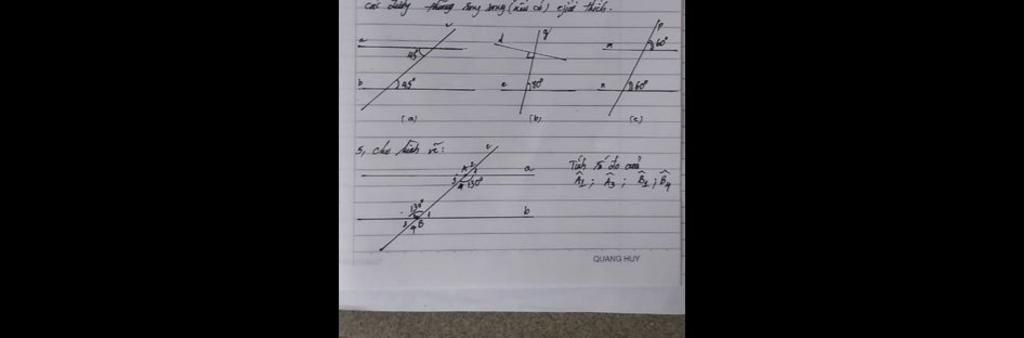 các đường thẳng song song (nếu có) giải thích.
c
a
45°
b
45°
(a)
d
g
e
80°
(b)
p
m
60°
n
60°
(c)
5, cho hình vẽ:
c
A 2
3 1
4 130°
a
130°
1
3 4 B
b
Tính số đo của
Â1 ; Â3 ; B̂1 ; B̂4
QUANG HUY